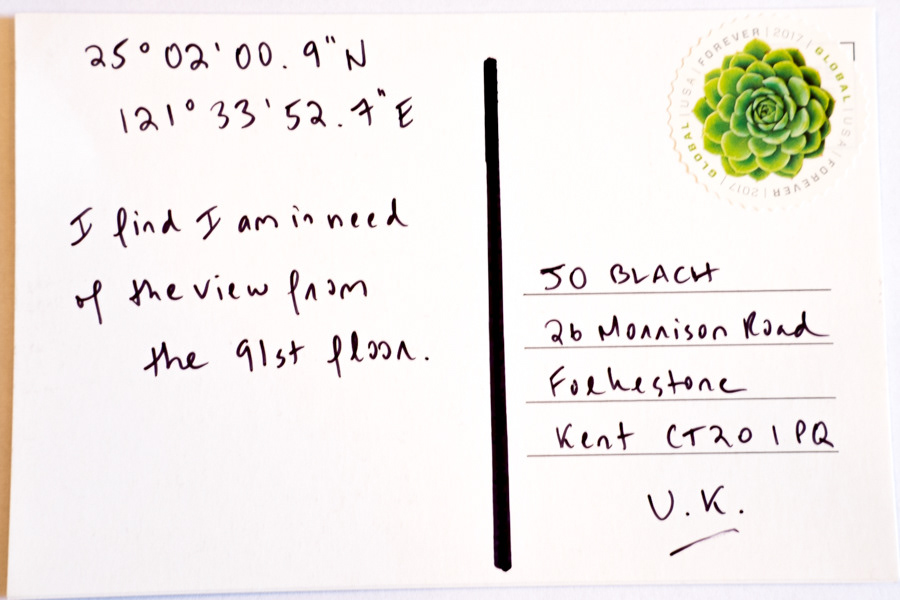 25° 02' 00.9" N
121° 33' 52.7" E
I find I am in need
of the view from
the 91st floor.
GLOBAL | USA | FOREVER | 2017 | GLOBAL | USA | FOREVER | 2017 |
JO BLACH
26 Morrison Road
Folkestone
Kent CT20 1PQ
U.K.